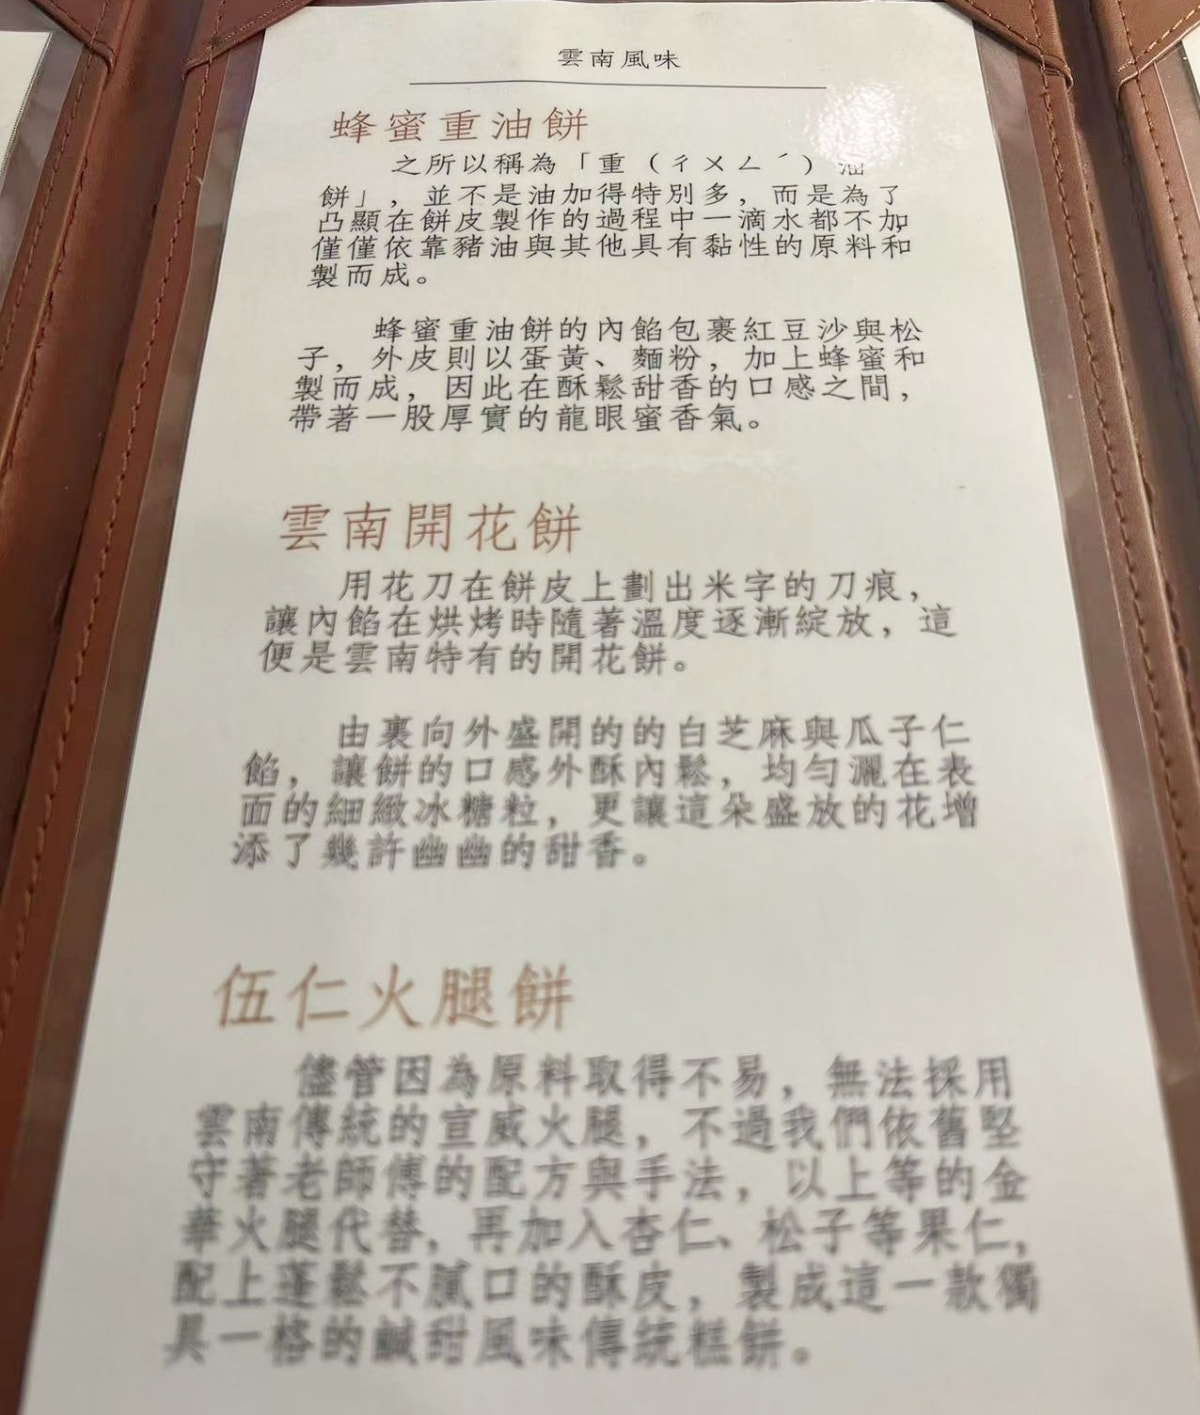 雲南風味
蜂蜜重油餅
之所以稱為「重（ㄔㄨㄥˊ）油
餅」，並不是油加得特別多，而是為了
凸顯在餅皮製作的過程中一滴水都不加
僅僅依靠豬油與其他具有黏性的原料和
製而成。
蜂蜜重油餅的內餡包裹紅豆沙與松
子，外皮則以蛋黃、麵粉，加上蜂蜜和
製而成，因此在酥鬆甜香的口感之間，
帶著一股厚實的龍眼蜜香氣。
雲南開花餅
用花刀在餅皮上劃出米字的刀痕，
讓內餡在烘烤時隨著溫度逐漸綻放，這
便是雲南特有的開花餅。
由裏向外盛開的的白芝麻與瓜子仁
餡，讓餅的口感外酥內鬆，均勻灑在表
面的細緻冰糖粒，更讓這朵盛放的花增
添了幾許幽幽的甜香。
伍仁火腿餅
儘管因為原料取得不易，無法採用
雲南傳統的宣威火腿，不過我們依舊堅
守著老師傅的配方與手法，以上等的金
華火腿代替，再加入杏仁、松子等果仁，
配上蓬鬆不膩口的酥皮，製成這一款獨
具一格的鹹甜風味傳統糕餅。